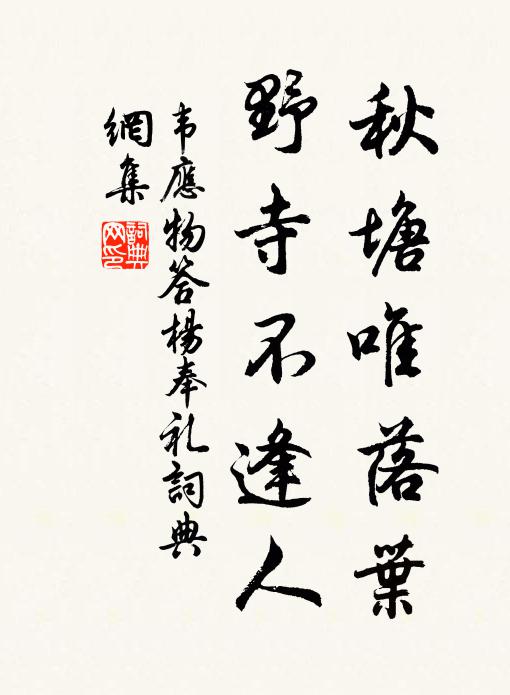 秋塘唯落葉
野寺不逢人
韦應物答楊奉礼詞典
網集
詞典
网印